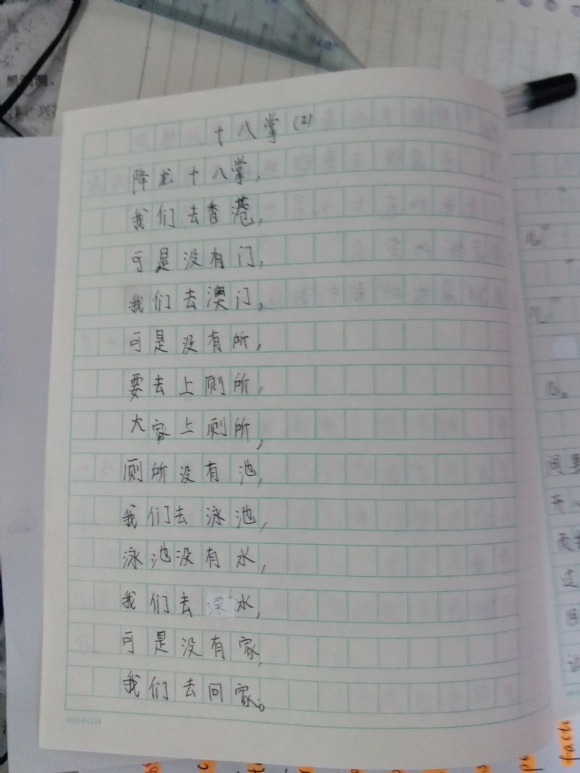 十八掌(2)
降龙十八掌,
我们去香港,
可是没有门,
我们去澳门,
可是没有所,
要去上厕所,
大家上厕所,
厕所没有池,
我们去泳池,
泳池没有水,
我们去深水,
可是没有家
我们去回家。